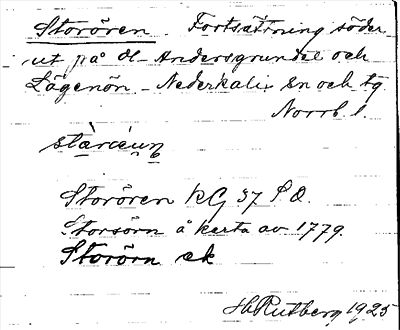 Storören. Fortsättning söder
ut på Ol-Andersgrundet och
Lågenön - Nederkalix sn och tg
Norrb. l.
Storören KG 37 S.O.
Storsörn å karta av 1779.
Storörn ek
H. Rutberg 1925